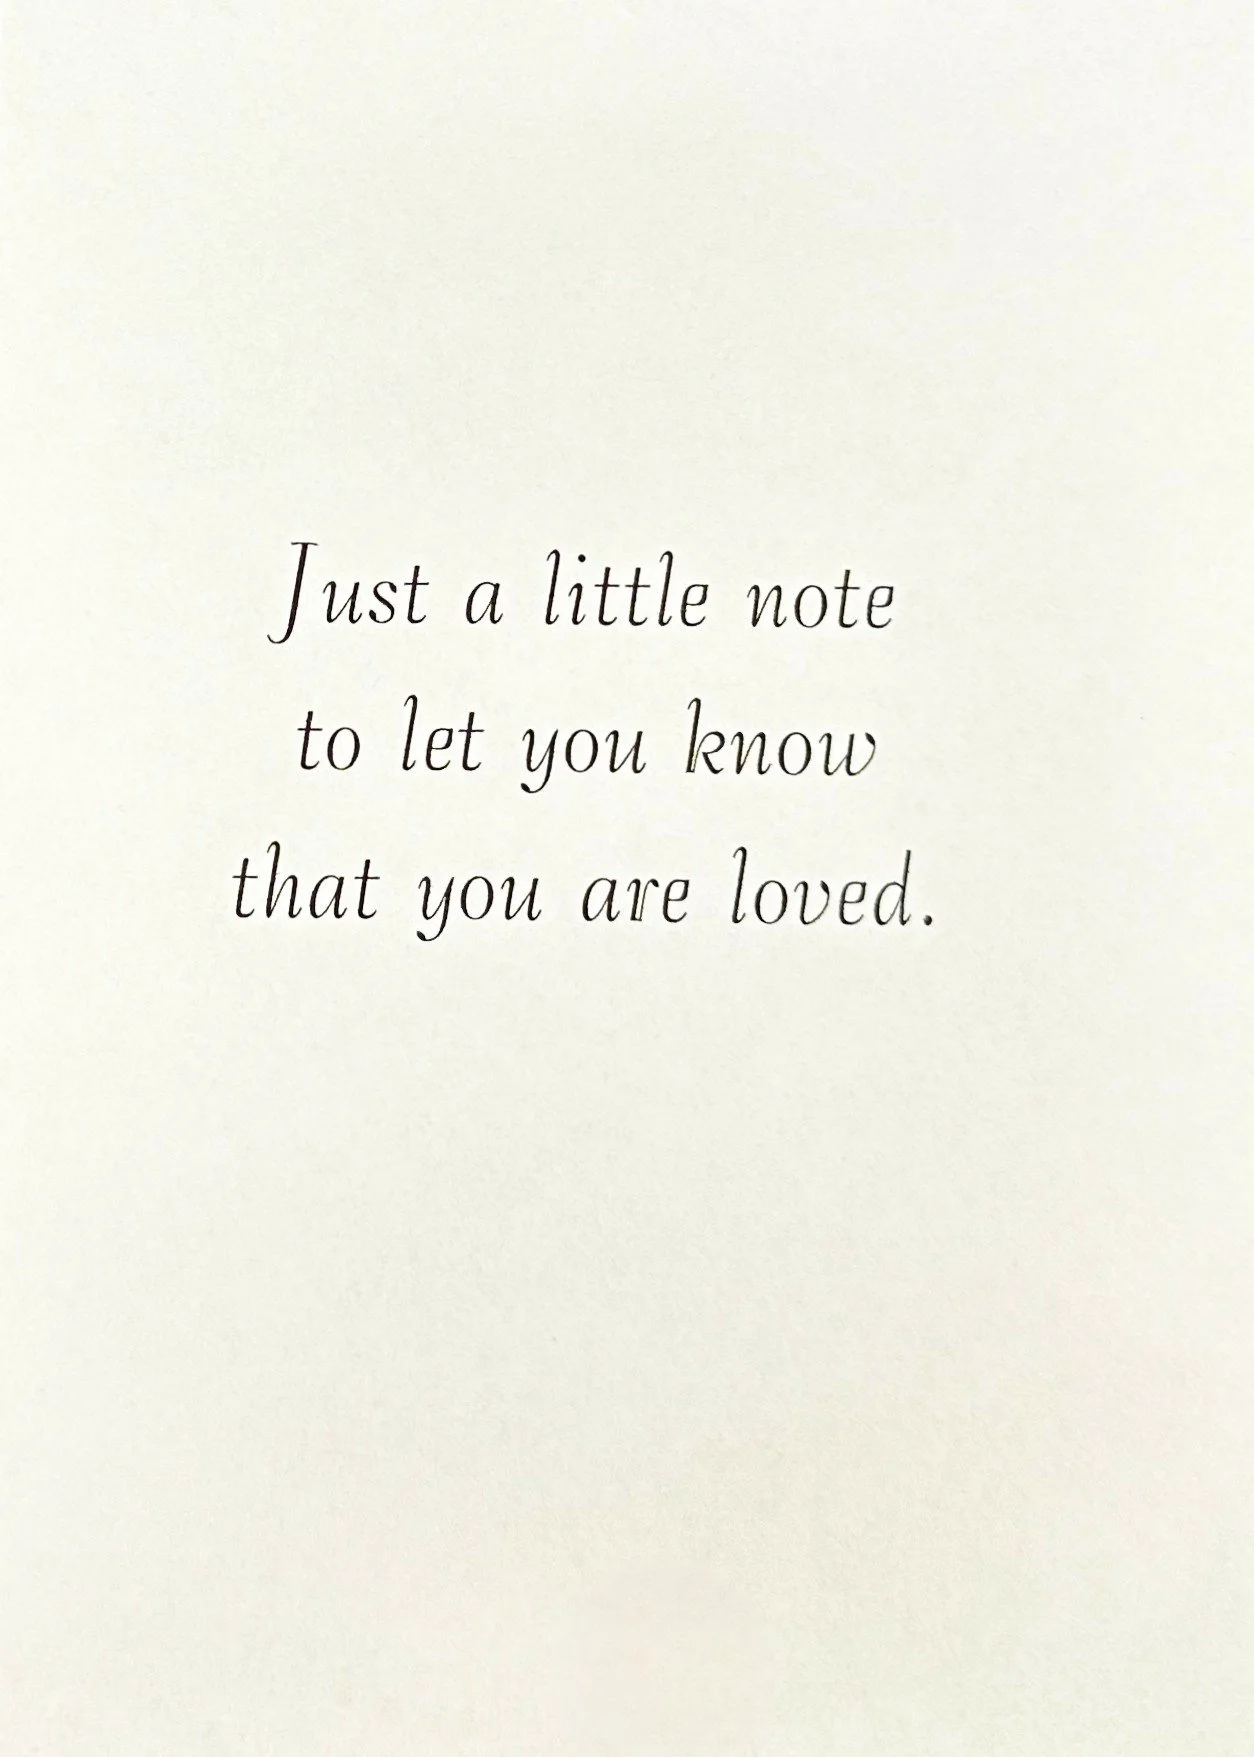 Just a little note
to let you know
that you are loved.